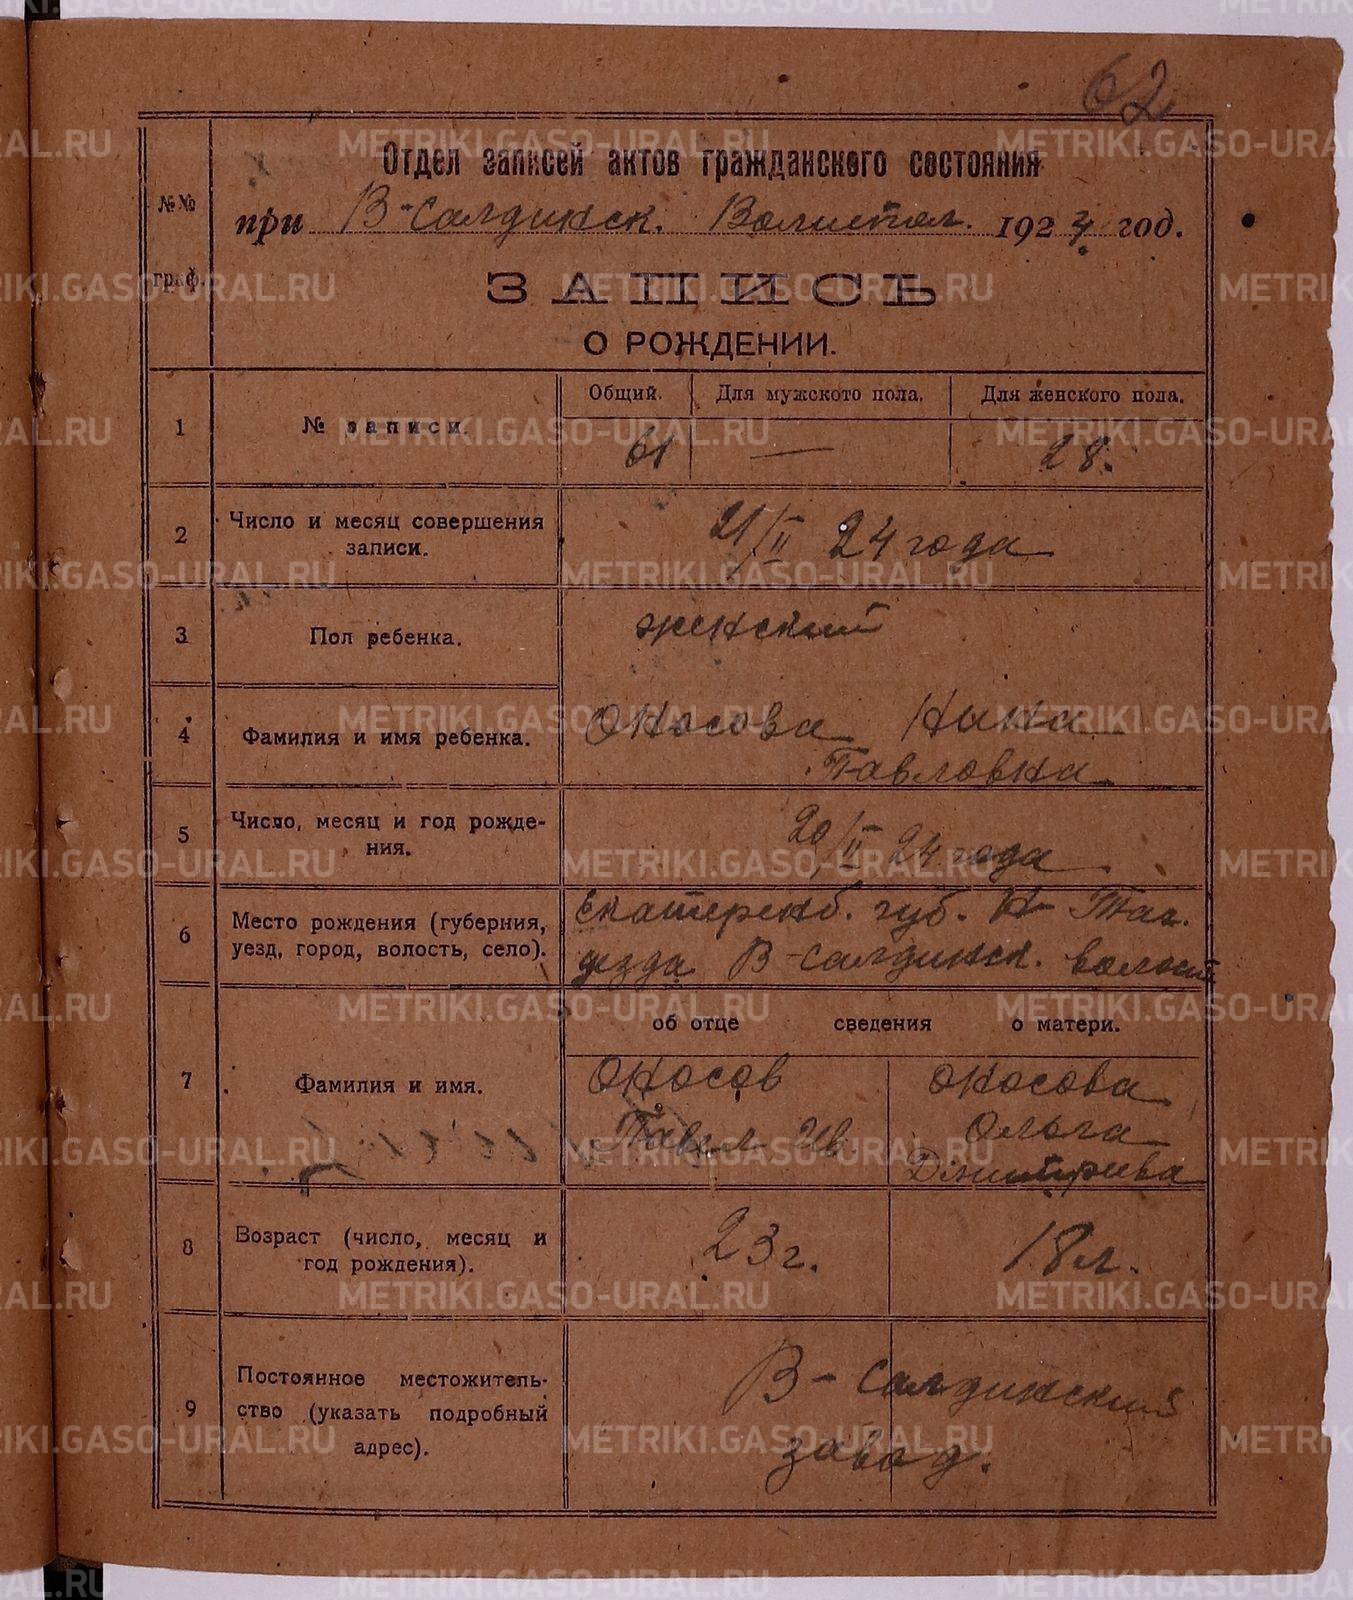 62
Отдел записей актов гражданского состояния
№№ граф.
при В-Салдинск. Волиспол. 1924 год.
ЗАПИСЬ
О РОЖДЕНИИ.
Общий. Для мужского пола. Для женского пола.
1 № записи. 61 — 28.
2 Число и месяц совершения
записи.
21/II 24 года
3 Пол ребенка. женский
4 Фамилия и имя ребенка. Оносова Нина
Павловна
5 Число, месяц и год рожде-
ния.
20/II 24 года
6 Место рождения (губерния,
уезд, город, волость, село).
Екатеренб. губ. Н-Таг.
уезда В-Салдинск. волост
об отце сведения о матери.
7 Фамилия и имя.
Оносов
Павел Ив.
Оносова
Ольга
Дмитрива
8 Возраст (число, месяц и
год рождения).
23 г. 18 л.
9 Постоянное местожитель-
ство (указать подробный
адрес).
В-Салдинский
завод.
METRIKI.GASO-URAL.RU